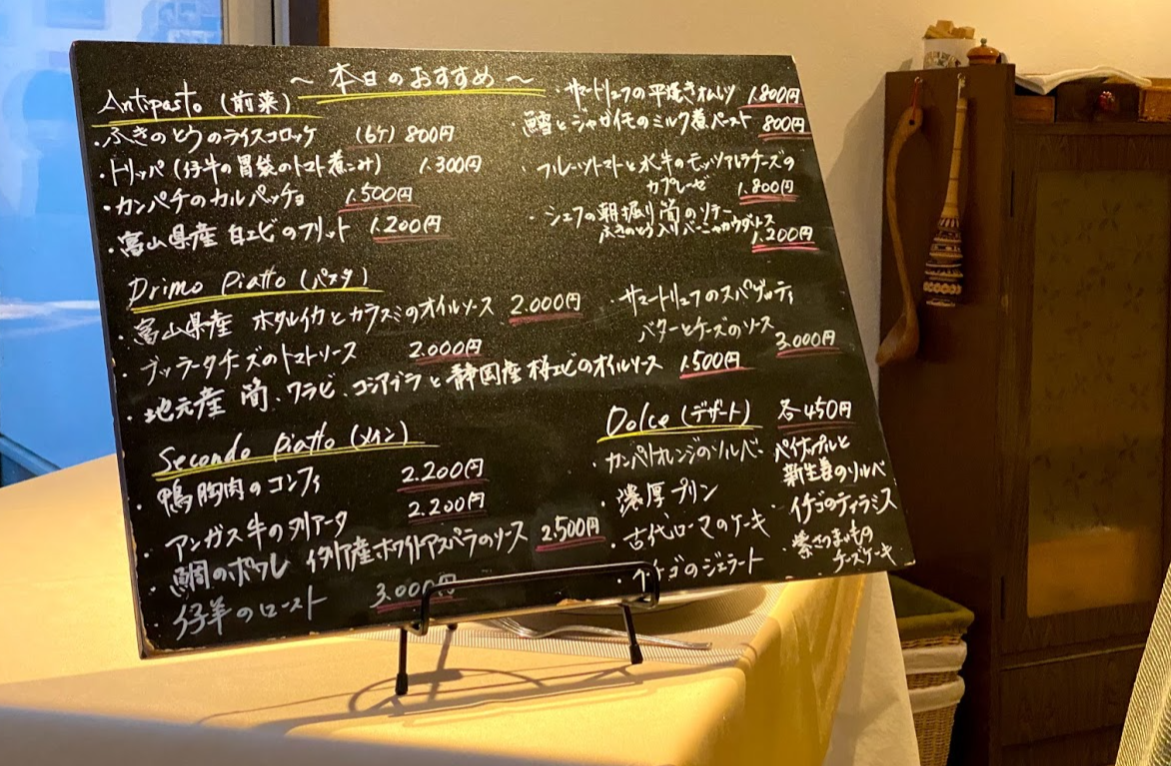 ～ 本日のおすすめ ～
Antipasto (前菜)
・ふきのとうのライスコロッケ (6ケ) 800円
・トリッパ (仔牛の胃袋のトマト煮こみ) 1.300円
・カンパチのカルパッチョ 1.500円
・富山県産 白エビのフリット 1.200円
・サマートリュフの平焼きオムレツ 1.800円
・鱈とジャガイモのミルク煮ペースト 800円
・フルーツトマトと水牛のモッツァレラチーズの
カプレーゼ 1.800円
・シェフの朝掘り筍のソテー
ふきのとう入りバーニャカウダソース
1.200円
Primo Piatto (パスタ)
・富山県産 ホタルイカとカラスミのオイルソース 2.000円
・ブッラータチーズのトマトソース 2.000円
・地元産 筍、ワラビ、コシアブラと静岡産桜エビのオイルソース 1.500円
・サマートリュフのスパゲッティ
バターとチーズのソース
3.000円
Secondo Piatto (メイン)
・鴨胸肉のコンフィ 2.200円
・アンガス牛のタリアータ 2.200円
・鯛のポワレ イタリア産ホワイトアスパラのソース 2.500円
・仔羊のロースト 3.000円
Dolce (デザート) 各450円
・カンパリオレンジのソルベ
・濃厚プリン
・古代ローマのケーキ
・イチゴのジェラート
パイナップルと
新生姜のソルベ
・イチゴのティラミス
・紫さつまいもの
チーズケーキ